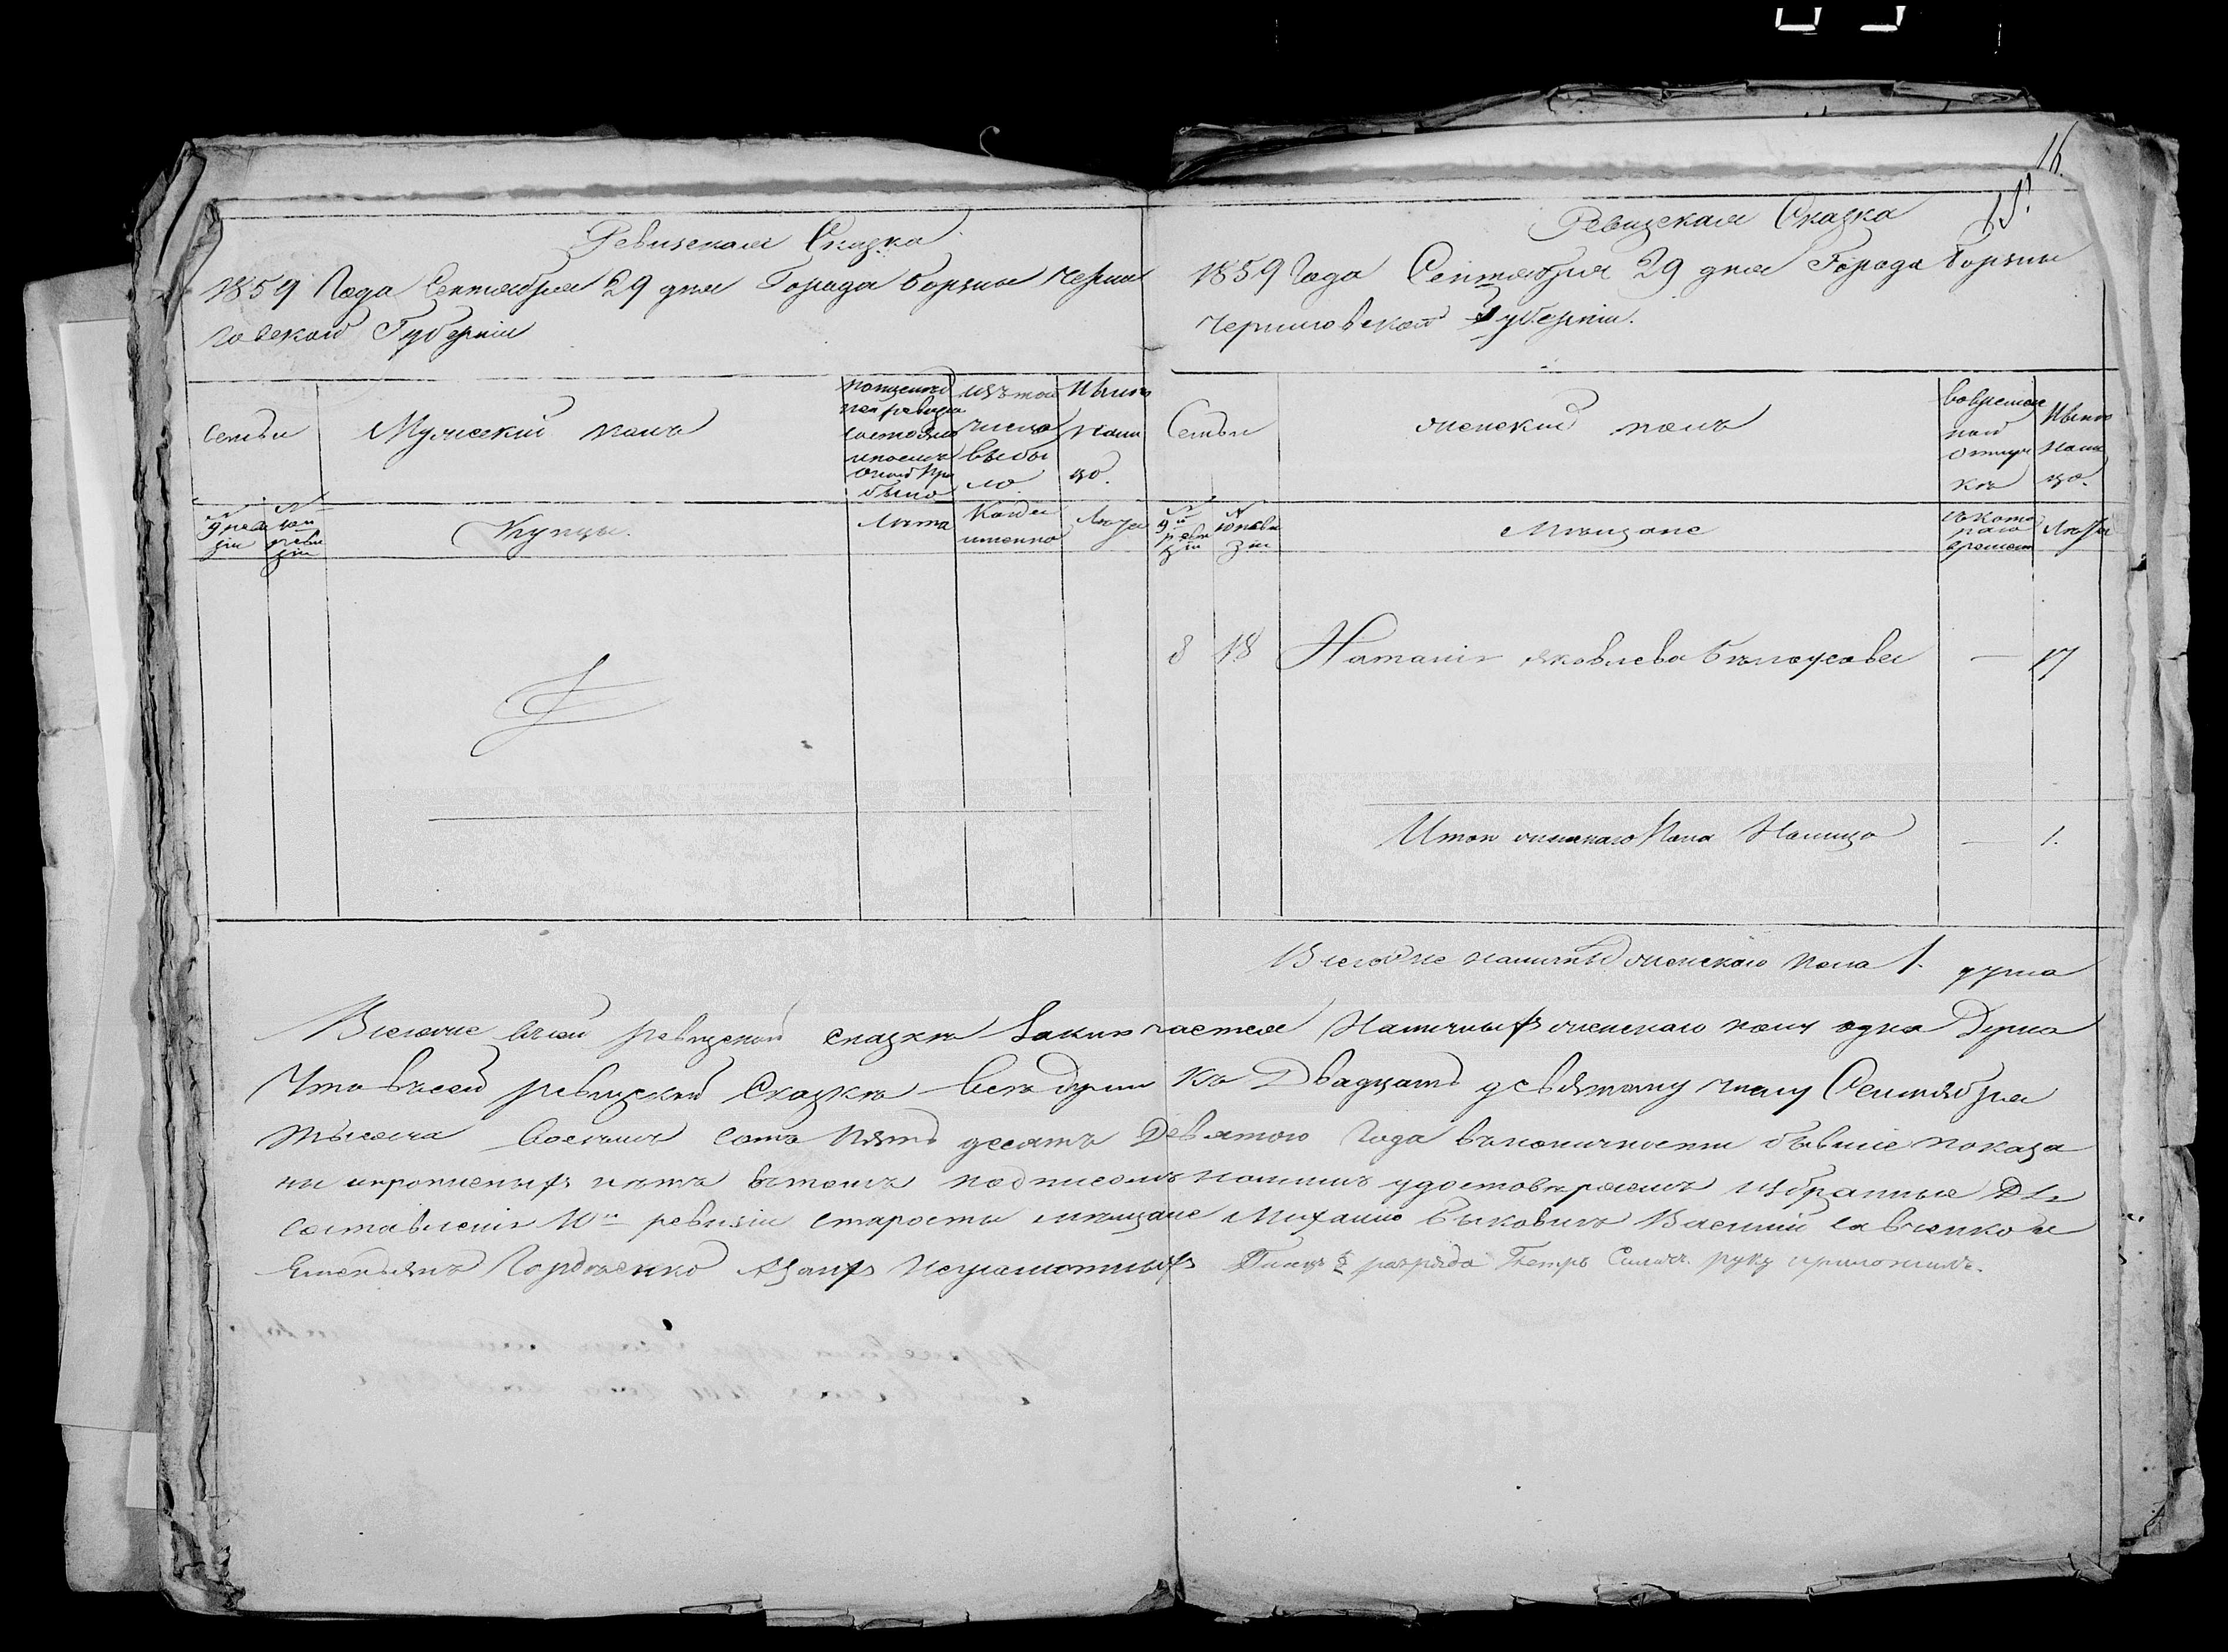 16.
15.
Ревизская Сказка
1859 Года Сентября 29 дня Города Борзны Черни
говской Губерніи
Семьи
Мужескій полъ
По последней
ней ревизіи
состояло
и после
оной при
было
Изъ того
числа
выбы
ло
Ныне
нали
цо.
№
9 реви
зіи
№
10й
реви
зіи
Купцы.
Лета
Когда
именно
Лета
Ревизская Сказка
1859 Года Сентября 29 дня Города Борзны
Черниговской Губерніи.
Семьи
женскій полъ
Вовремен
ной
отлуч
къ
Ныне
нали
цо.
№
9й
реви
зіи
№
10 реви
зіи
Мещане
съ кото
раго
времени
Лета
8 18 Наталія Яковлева Белоусова — 17
Итого женскаго Пола Налицо — 1.
Всего не наличныхъ женскаго пола 1. душа
Всего въ сей ревизской сказкъ Заключается Наличныхъ женскаго полу одна Душа
Что въ сей ревизской Сказкъ Все души Къ Двадцать девятому числу Сентября
тысеча восемь сотъ пять десятъ Девятого Года въ наличности бывшіе показа
ны и прописныхъ нетъ въ томъ подписомъ нашимъ удостоверяемъ Избранные Для
составленія 10й ревизіи старосты мещане Михайло Быковичъ Василій Савченко и
Емельянъ Гордеенко А За ихъ Неграмотныхъ разряда Петръ руку приложилъ.